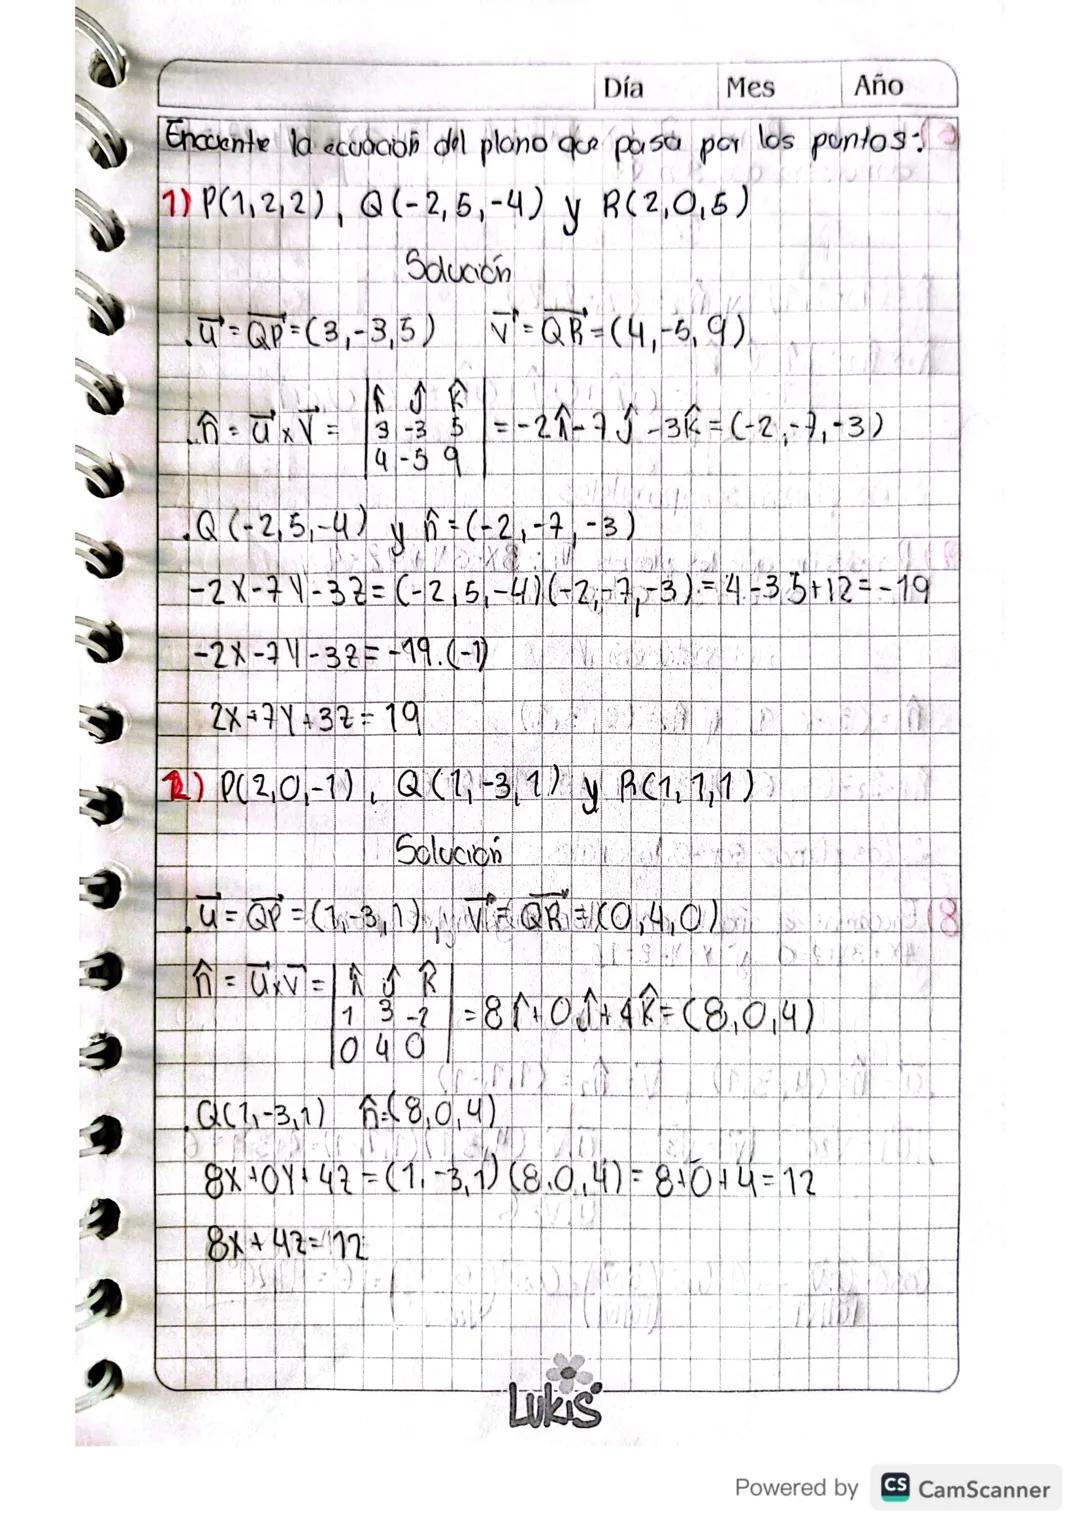 Día Mes Año
Encuente la ecuación del plano que pasa por los puntos:
1) P(1,2,2), Q(-2,5,-4) y R(2,0,5)
Solución
.u⃗ = QP⃗ = (3,-3,5) v⃗ = QR⃗ = (4,-5,9)
.n̂ = u⃗ x v⃗ = | î ĵ k̂ | = -2î - 7ĵ - 3k̂ = (-2,-7,-3)
3 -3 5
4 -5 9
.Q(-2,5,-4) y n̂ = (-2,-7,-3)
-2X-7Y-3Z = (-2,5,-4)(-2,-7,-3) = 4-35+12 = -19
-2X-7Y-3Z = -19.(-1)
2X+7Y+3Z = 19
2) P(2,0,-1), Q(1,-3,1) y R(1,1,1)
Solución
.u⃗ = QP⃗ = (1,-3,1), v⃗ = QR⃗ = (0,4,0)
n̂ = u⃗ x v⃗ = | î ĵ k̂ | = 8î + 0ĵ + 4k̂ = (8,0,4)
1 3 -2
0 4 0
.Q(1,-3,1) n̂ = (8,0,4)
8X+0Y+4Z = (1,-3,1)(8,0,4) = 8+0+4 = 12
8X+4Z = 12
LUKIS
Powered by CS CamScanner